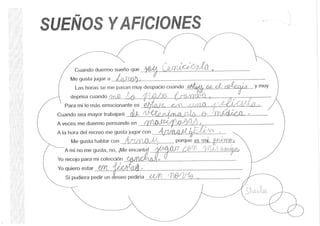 SUEÑOS Y AFICIONES
Cuando duermo sueño que soy Cenicienta.
Me gusta jugar a
Las horas se me pasan muy despacio cuando estoy en el colegio y muy
deprisa cuando me lo paso
Para mi lo más emocionante es estar en una película.
Cuando sea mayor trabajaré de veterinaria o médica.
A veces me duermo pensando en mariposas.
A la hora del recreo me gusta jugar con
Me gusta hablar con porque es mi primo.
A mí no me gusta, no, ¡Me encanta! jugar con mis amigos
Yo recojo para mi colección conchas.
Yo quiero estar en fiestas.
Si pudiera pedir un deseo pediría un novio.
Sheila